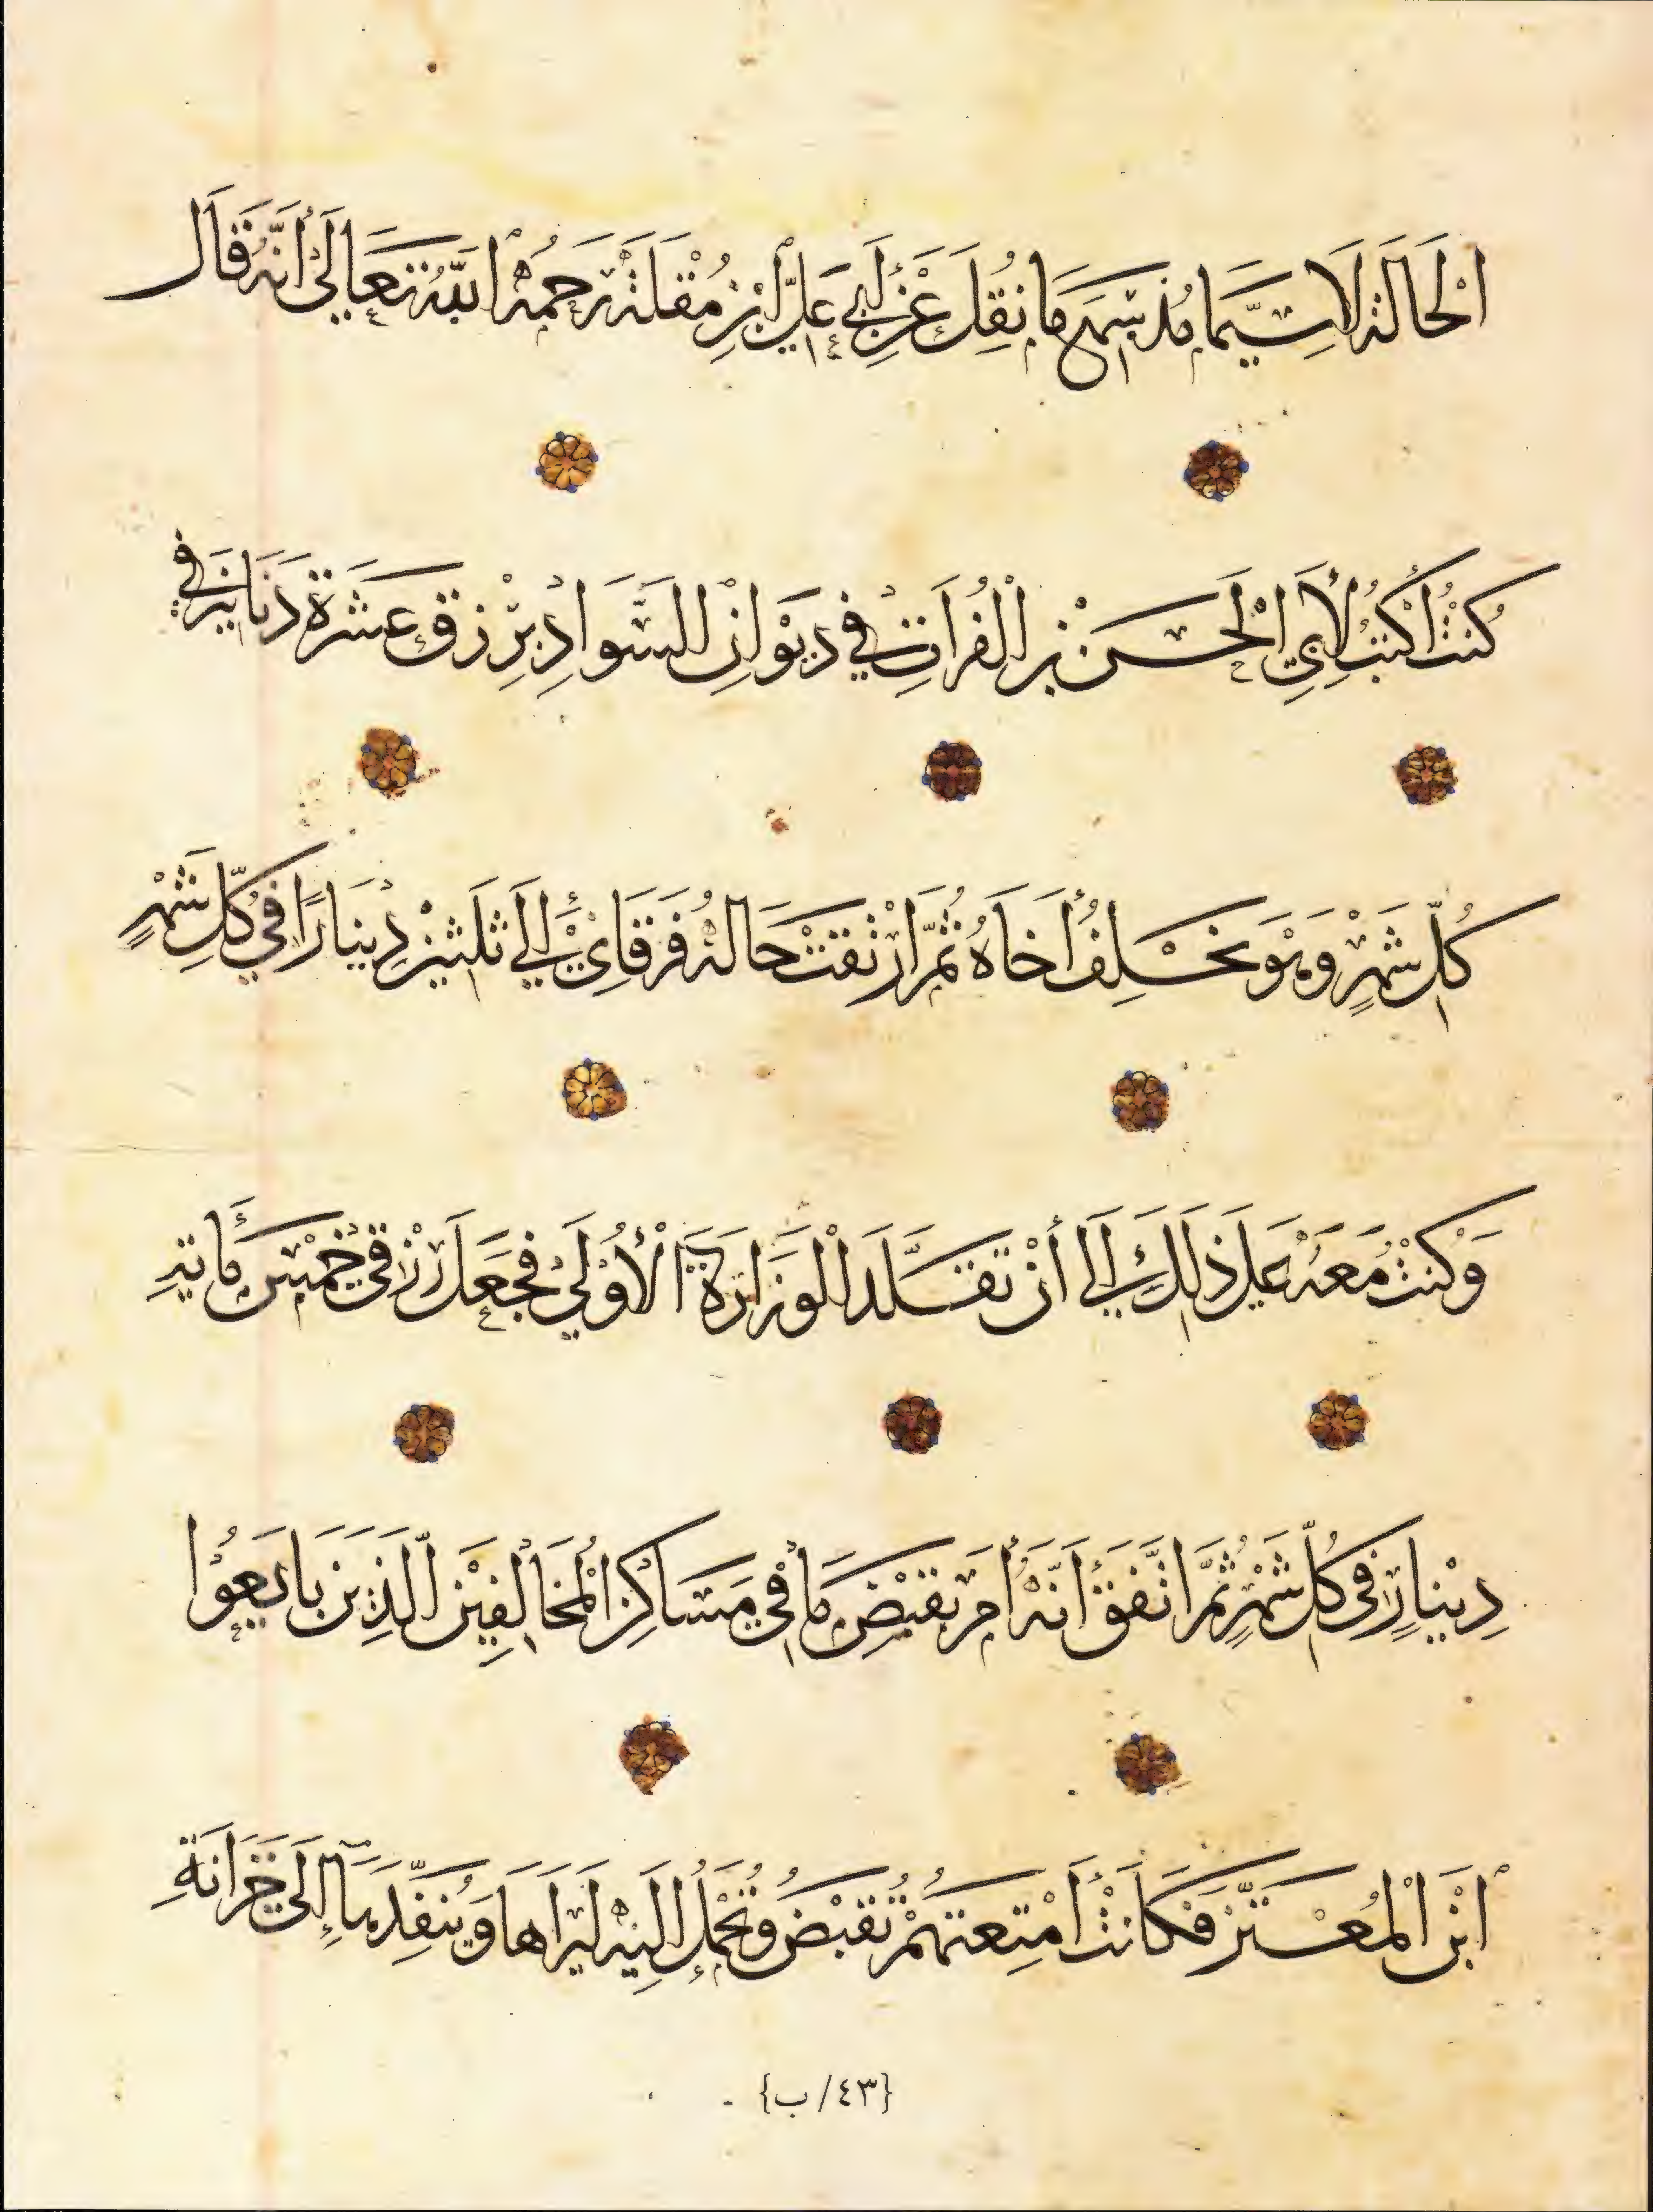 الْحَالَةِ لَاسِيَّمَا مُذْ سَمِعَ مَا نُقِلَ عَنْ أَبِي عَلِيِّ ابْنِ مُقْلَةَ رَحِمَهُ اللَّهُ تَعَالَى أَنَّهُ قَالَ
كُنْتُ أَكْتُبُ لِأَبِي الْحَسَنْ بْنِ الْفُرَاتِ فِي دِيْوَانِ السَّوَادِ بِرِزْقِ عَشَرَةِ دَنَانِيْرَ فِي
كُلِّ شَهْرٍ وَهُوَ يَخْلِفُ أَخَاهُ ثُمَّ ارْتَفَتْ حَالُهُ فَرَقَانِيْ إِلَى ثَلَثِيْنَ دِيْنَارًا فِي كُلِّ شَهْرٍ
وَكُنْتُ مَعَهُ عَلَى ذَلِكَ إِلَى أَنْ تَقَلَّدَ الْوَزَارَةَ الْأُوْلَى فَجَعَلَ رِزْقِي خَمْسَ مَائَةِ
دِيْنَارٍ فِي كُلِّ شَهْرٍ ثُمَّ اتَّفَقَ أَنَّهُ أَمَرَ بِقَبْضِ مَا فِي مَسَاكِنِ الْمُخَالِفِيْنَ الَّذِيْنَ بَايَعُوْا
ابْنَ الْمُعْتَزِّ فَكَانَتْ أَمْتِعَتُهُمْ تُقْبَضُ وَتُحْمَلُ إِلَيْهِ لِيَرَاهَا وَيُنَفِّدَهَا إِلَى خَزَانَةِ
{٤٣/ب}